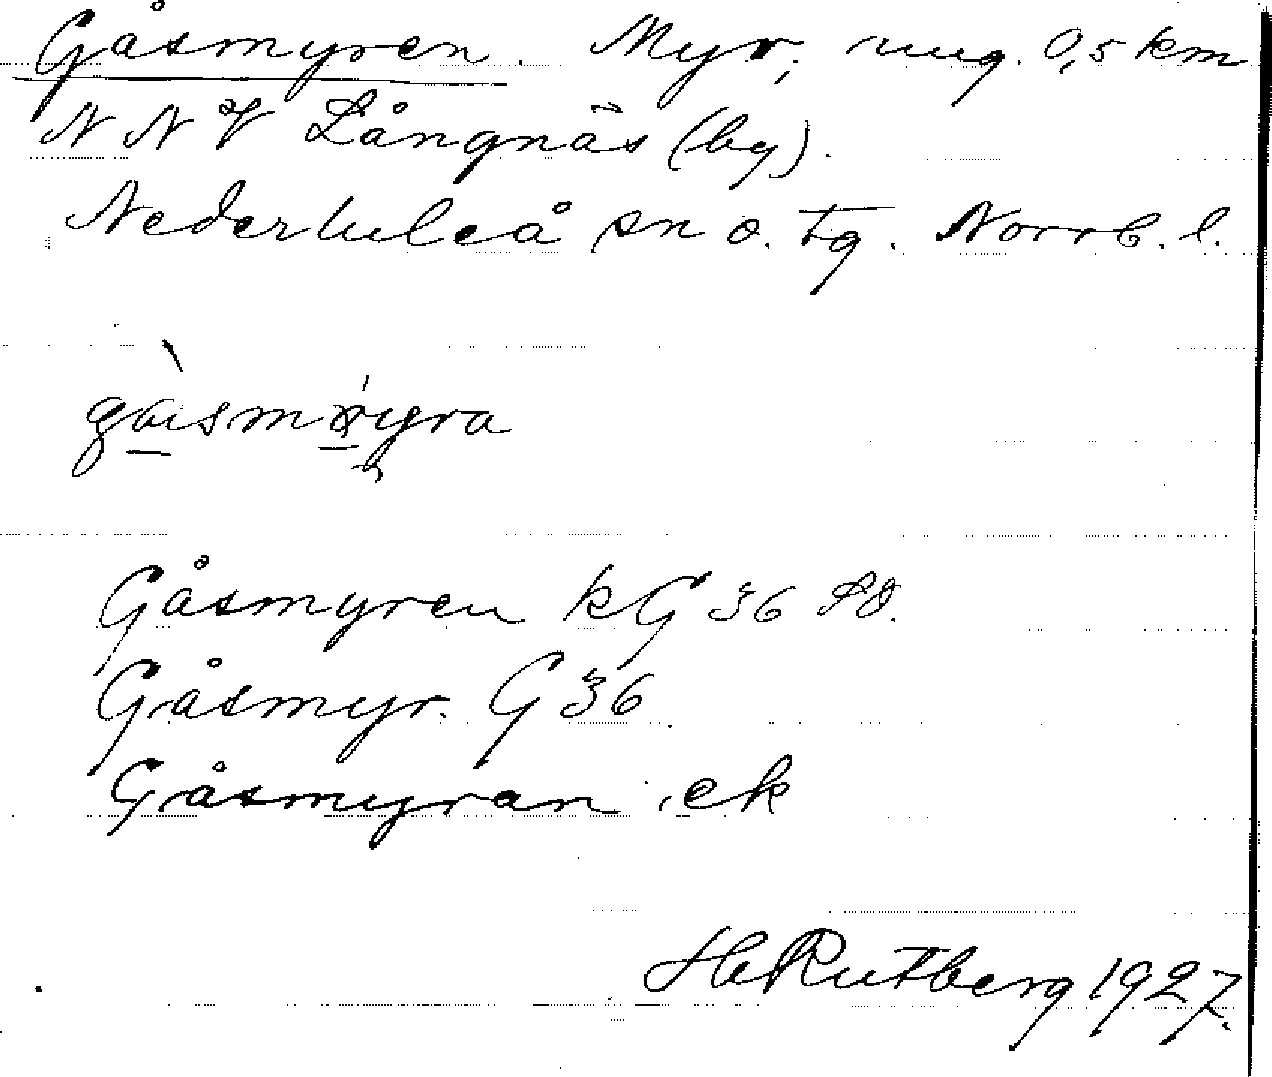 Gåsmyren. Myr, ung. 0,5 km
N N V Långnäs (by).
Nederluleå sn o. tg. Norrb. l.
Gåsmyren kG 36 SO.
Gåsmyr. G 36.
Gåsmyran ek
H Rutberg 1927.